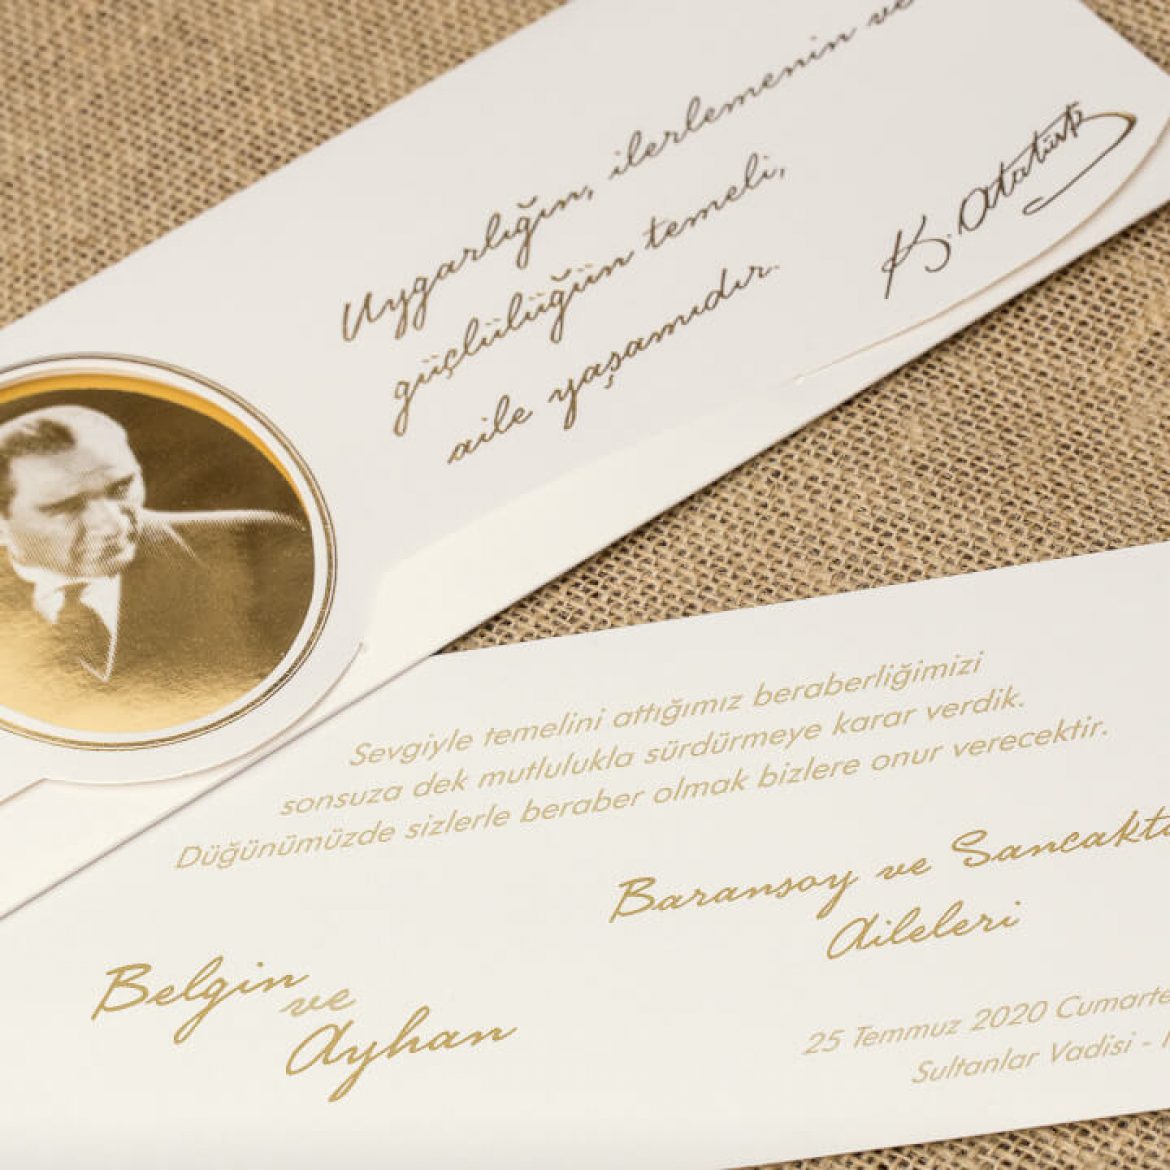 Uygarlığın, ilerlemenin ve
güçlülüğün temeli,
aile yaşamıdır.
K. Atatürk
Sevgiyle temelini attığımız beraberliğimizi
sonsuza dek mutlulukla sürdürmeye karar verdik.
Düğünümüzde sizlerle beraber olmak bizlere onur verecektir.
Belgin
ve
Ayhan
Baransoy ve
Aileleri
25 Temmuz 2020
Sultanlar Vadisi -